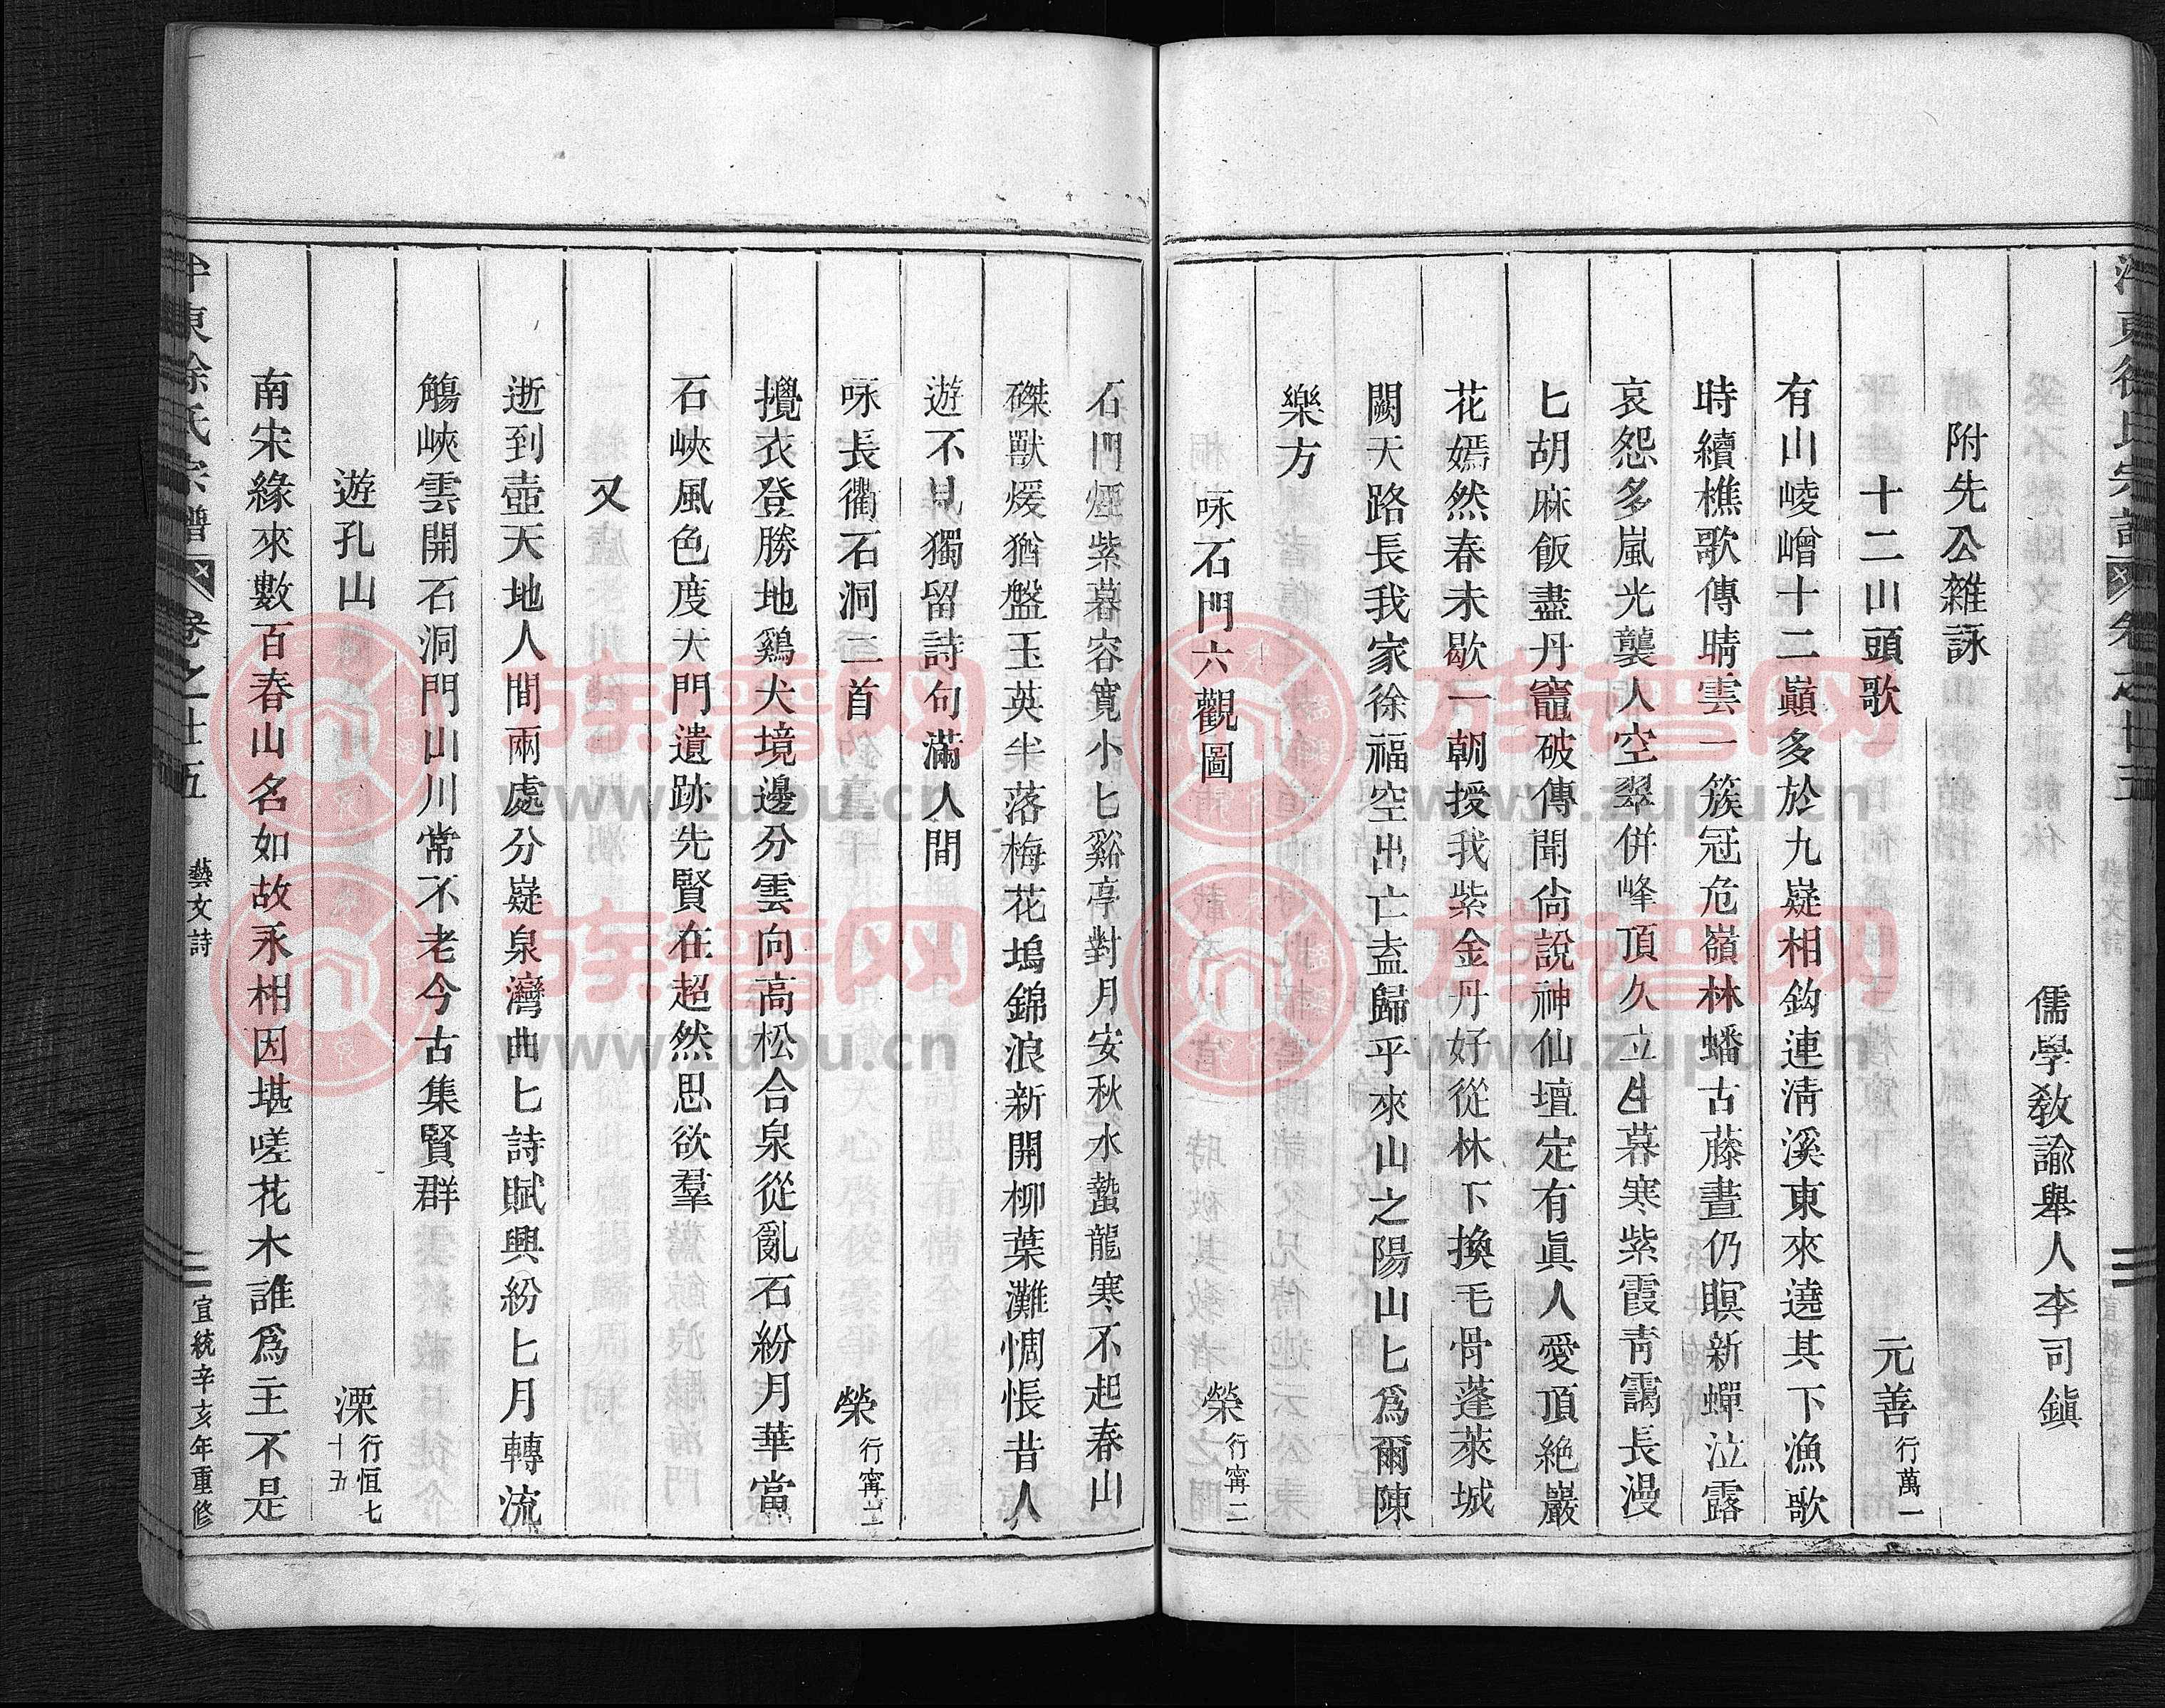 儒學敎諭舉人李司鎭
附先公雜詠
十二山頭歌 元善行萬一
有山崚嶒十二巔多於九嶷相鈎連淸溪東來遶其下漁歌
時續樵歌傳晴雲一簇冠危嶺林蟠古藤晝仍瞑新蟬泣露
哀怨多嵐光襲人空翠併峰頂久立生暮寒紫霞靑靄長漫
匕胡麻飯盡丹竈破傳聞尙說神仙壇定有眞人愛頂絶巖
花嫣然春未歇一朝授我紫金丹好從林下換毛骨蓬萊城
闕天路長我家徐福空出亡盍歸乎來山之陽山匕爲爾陳
樂方
咏石門六觀圖 榮行甯二
石門煙紫暮容寬小匕谿亭對月安秋水蟄龍寒不起春山
磔獸煖猶盤玉英半落梅花塢錦浪新開柳葉灘惆悵昔人
遊不見獨留詩句滿人間
咏長衢石洞二首 榮行甯二
攪衣登勝地鷄犬境邊分雲向高松合泉從亂石紛月華當
石峽風色度天門遺跡先賢在超然思欲羣
又
逝到壺天地人間兩處分嶷泉灣曲匕詩賦興紛匕月轉流
觴峽雲開石洞門山川常不老今古集賢群
遊孔山 溧行恒七十五
南宋緣來數百春山名如故永相因堪嗟花木誰爲主不是
東徐氏宗譜 卷之廿五 藝文詩 二 宣統辛亥年重修
族譜网
www.zupu.cn